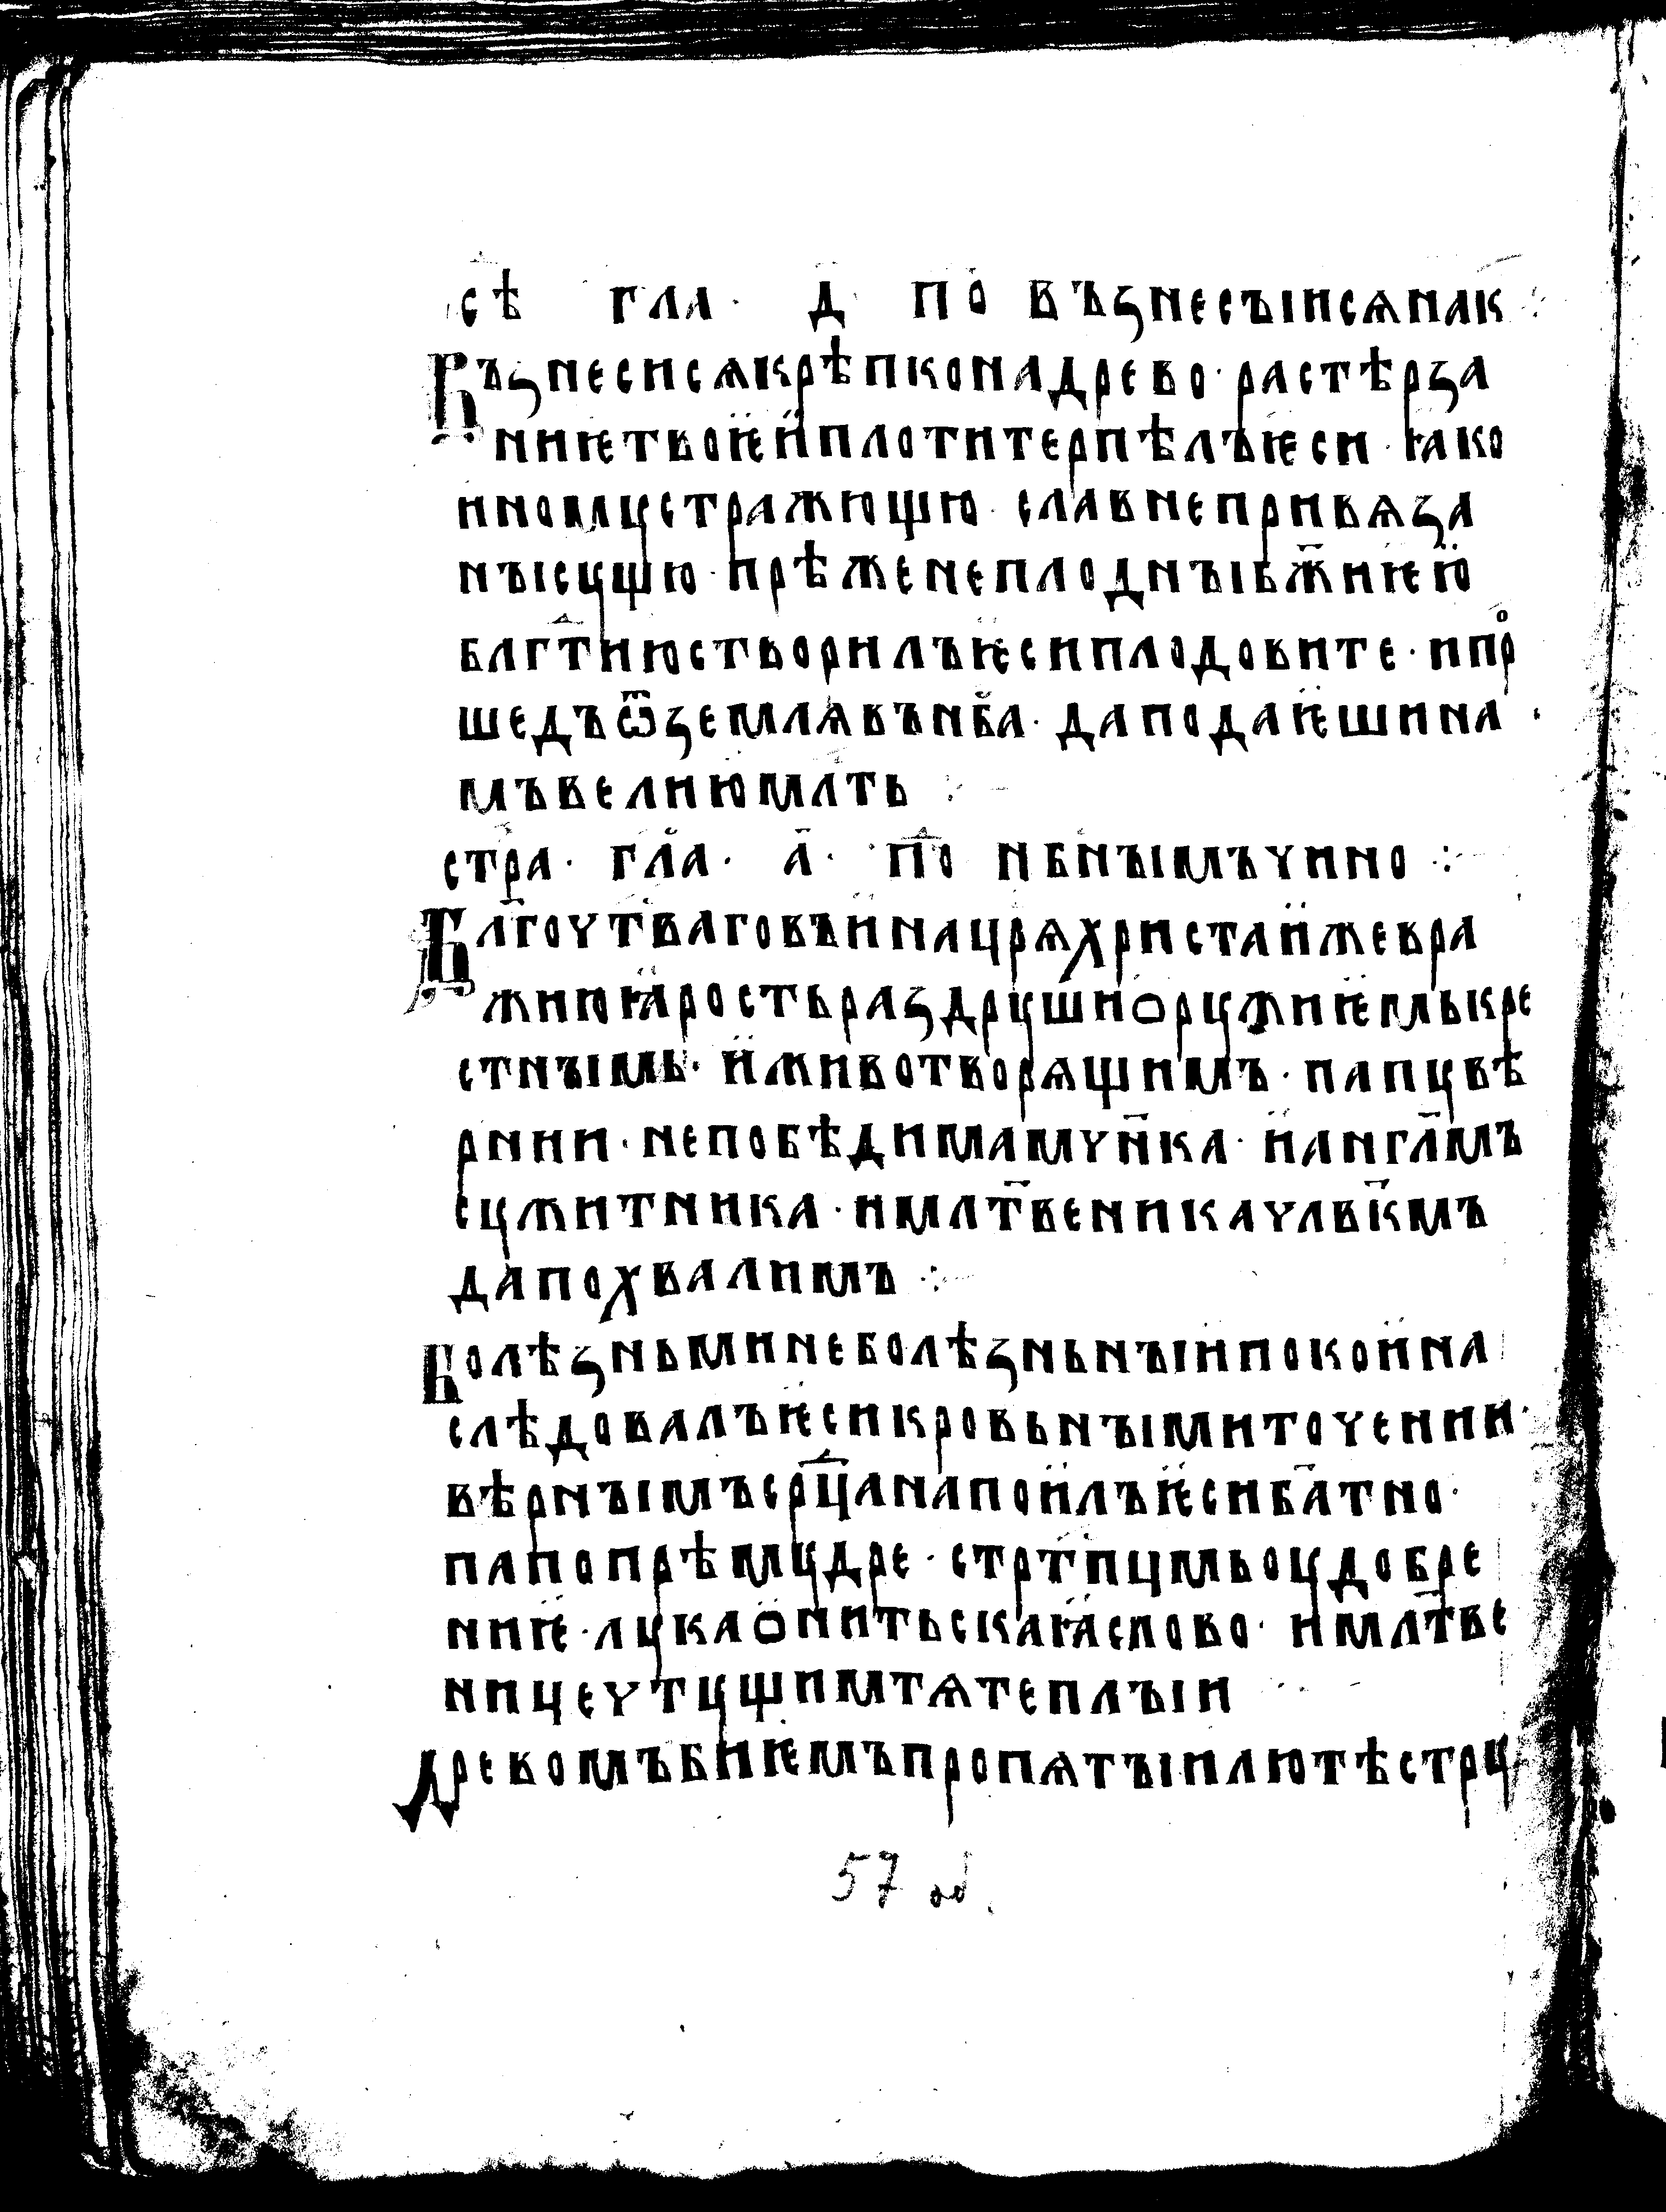 сѣ гла · д · по възнесыисѧнак ·:
Възнесисѧкрѣпконадрево · растѣрза
ниѥтвоѥйплотитерпѣлъѥси · ꙗко
иномꙋстражющю · славнепривѧза
нысꙋщю · прѣженеплодныбж҃иѥю
блгт҃июстворилъѥсиплодовите · ипро
шедъѿземлѧвънб҃а · даподаѥшина ·
мъвелиюмлть ·:
стра · гла · а҃ · по нб҃нымъчино ·:
Бл҃гоутваговъинацрѧхристаижевра
жиюꙗростьраздрꙋшиорꙋжиѥмькре
стнымь · иживотворѧщимъ · папцвѣ
рнии · непобѣдимамчн҃ка · иангл҃мъ
сꙋжитника · имлт҃веникачлвк҃мъ
дапохвалимъ ·:
Болѣзньминеболѣзньныипокоина
слѣдовалъѥсикровьнымиточении ·
вѣрнымъсрц҃анапоилъѥсиба҃тно ·
папопрѣмꙋдре · стртпцмьоудобре
ниѥ · лꙋкаонитьскаꙗслово · имлт҃ве
ницечтꙋщимтѧтеплыи
Древомъбиѥмъпропѧтыилютѣстрц
57 об.